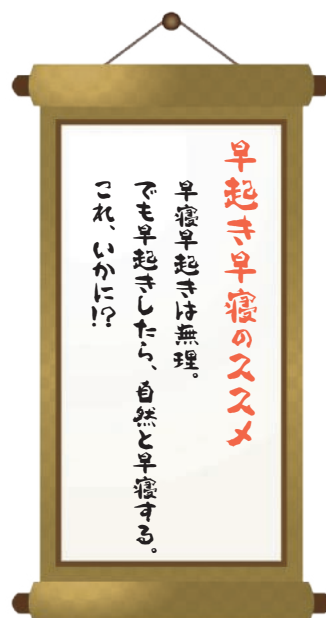 早起き早寝のススメ
早寝早起きは無理。
でも早起きしたら、自然と早寝する。
これ、いかに!?